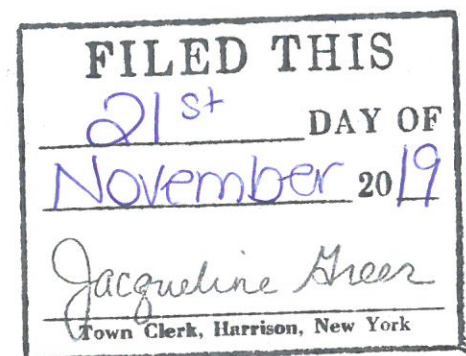 FILED THIS
21st DAY OF
November 2019
Jacqueline Greer
Town Clerk, Harrison, New York